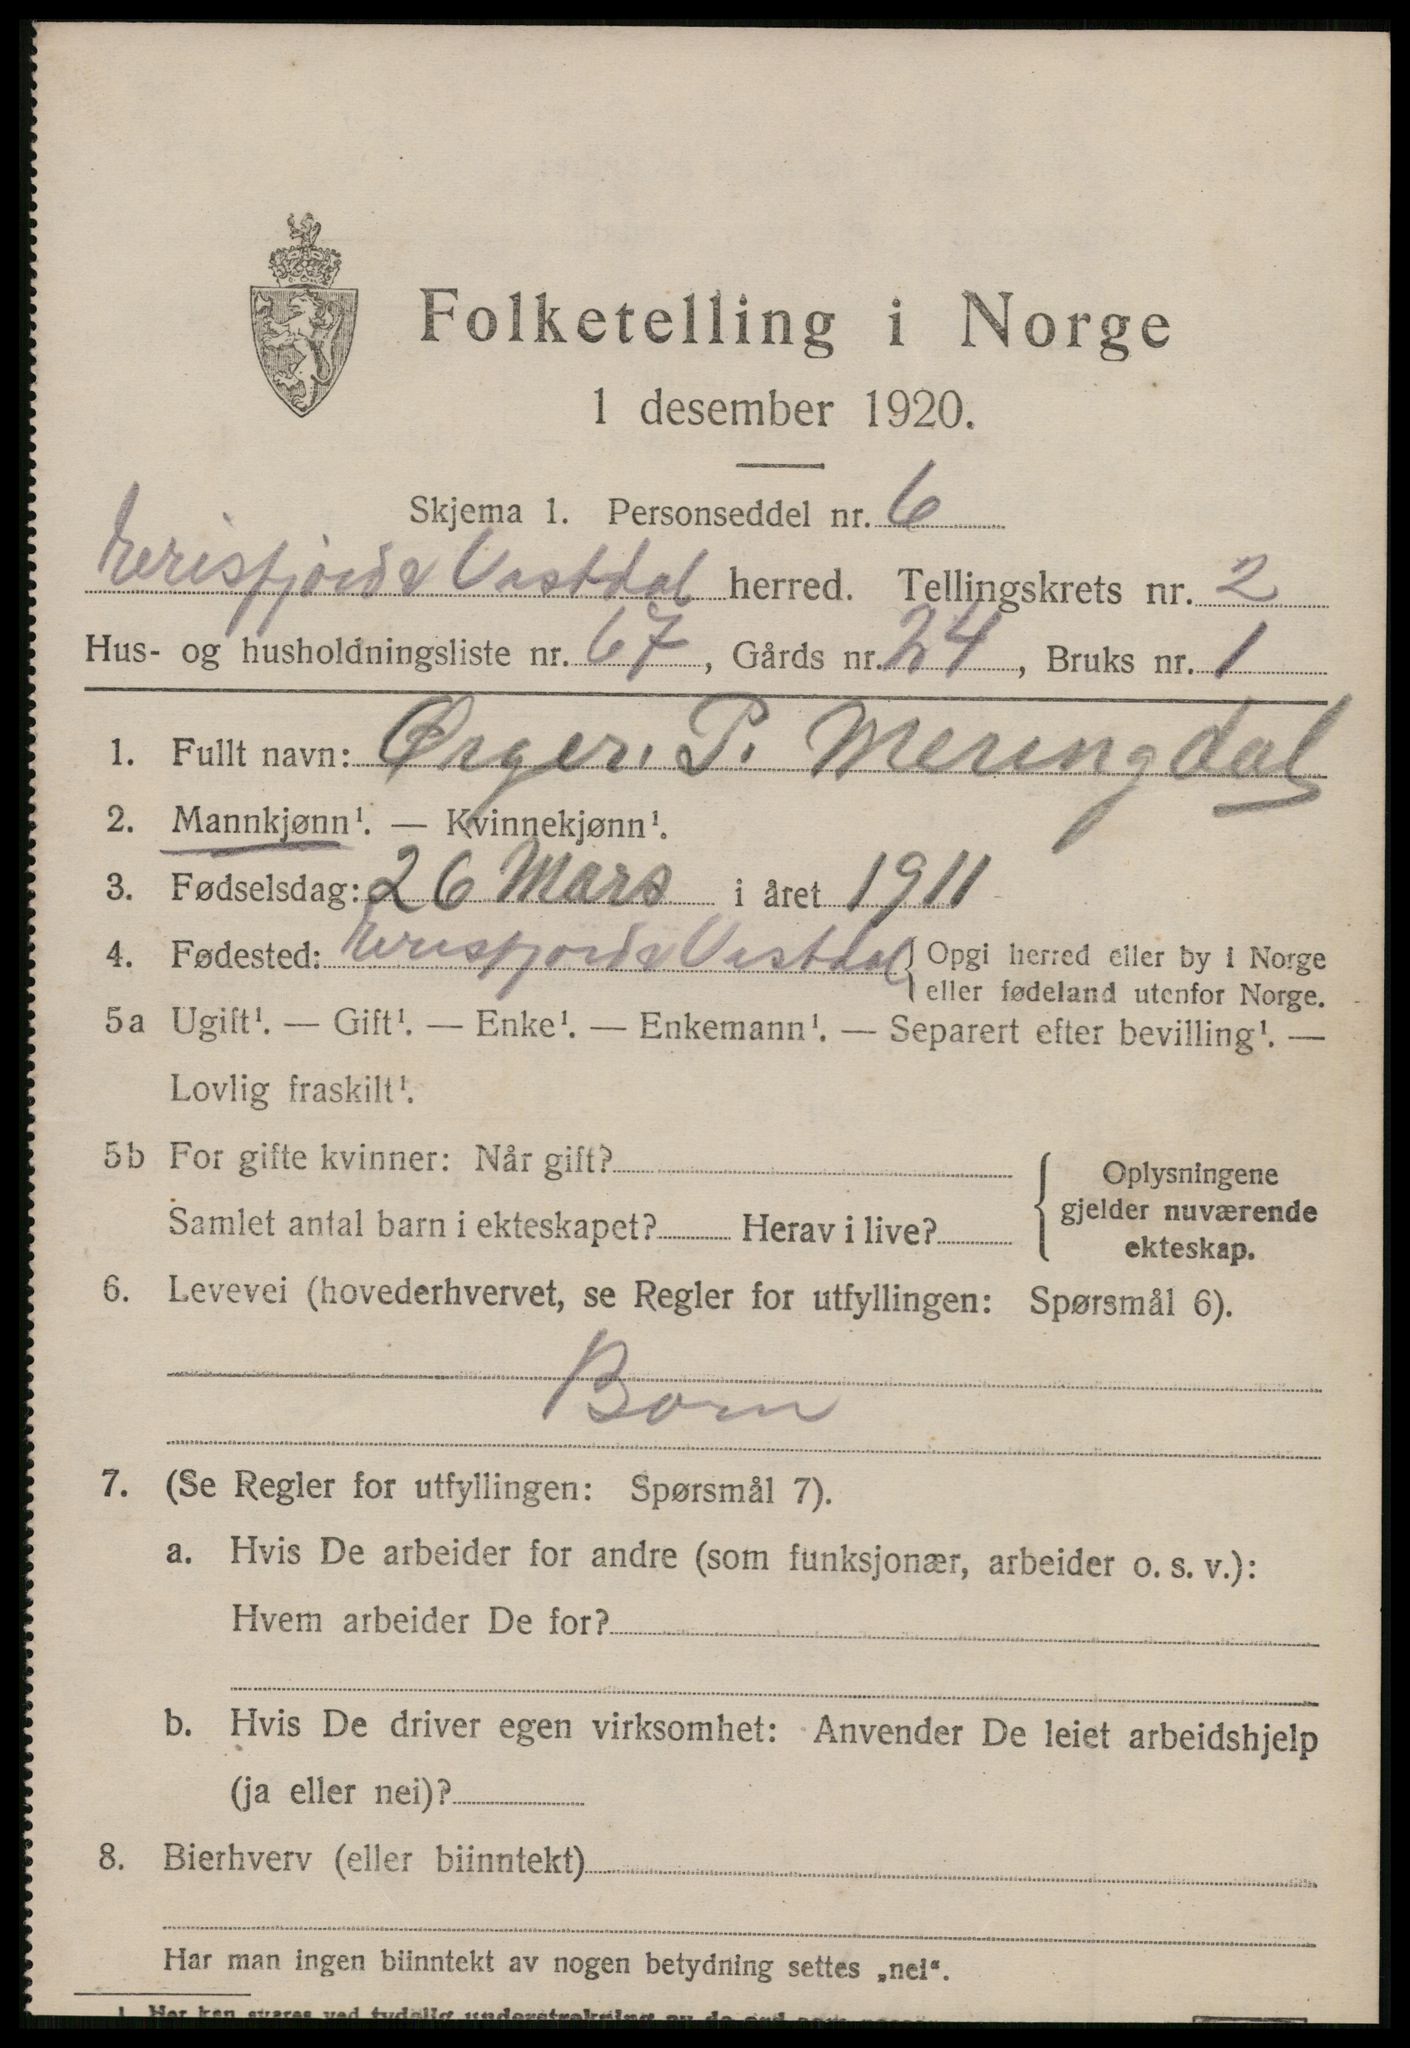 Folketelling i Norge
1 desember 1920.
Skjema 1. Personseddel nr. 6
Eresfjord & Vistdal herred. Tellingskrets nr. 2
Hus- og husholdningsliste nr. 67, Gårds nr. 24, Bruks nr. 1
1. Fullt navn: Ørger. P. Meringdal
2. Mannkjønn¹. — Kvinnekjønn¹.
3. Fødselsdag: 26 Mars i året 1911
4. Fødested: Eresfjord & Vistdal { Opgi herred eller by i Norge
eller fødeland utenfor Norge.
5a Ugift¹. — Gift¹. — Enke¹. — Enkemann¹. — Separert efter bevilling¹. —
Lovlig fraskilt¹.
5b For gifte kvinner: Når gift?
Samlet antal barn i ekteskapet? Herav i live?
Oplysningene
gjelder nuværende
ekteskap.
6. Levevei (hovederhvervet, se Regler for utfyllingen: Spørsmål 6).
Born
7. (Se Regler for utfyllingen: Spørsmål 7).
a. Hvis De arbeider for andre (som funksjonær, arbeider o. s. v.):
Hvem arbeider De for?
b. Hvis De driver egen virksomhet: Anvender De leiet arbeidshjelp
(ja eller nei)?
8. Bierhverv (eller biinntekt)
Har man ingen biinntekt av nogen betydning settes „nei“.
1 Her kan svares ved tydelig understrekning av de ord som